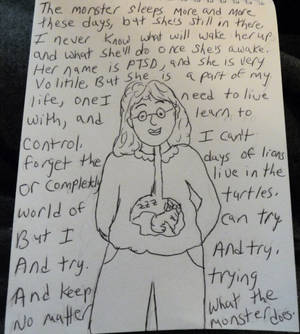 The monster sleeps more and more
these days, but she's still in there.
I never know what will wake her up
and what she'll do once she's awake.
Her name is PTSD, and she is very
Volitile. But she is a part of my
life, one I need to live
with, and learn to
control. I can't
forget the days of lions
or completely live in the
world of turtles.
But I can try
And try. And try,
And keep trying
No matter what the
monster does.
zzz